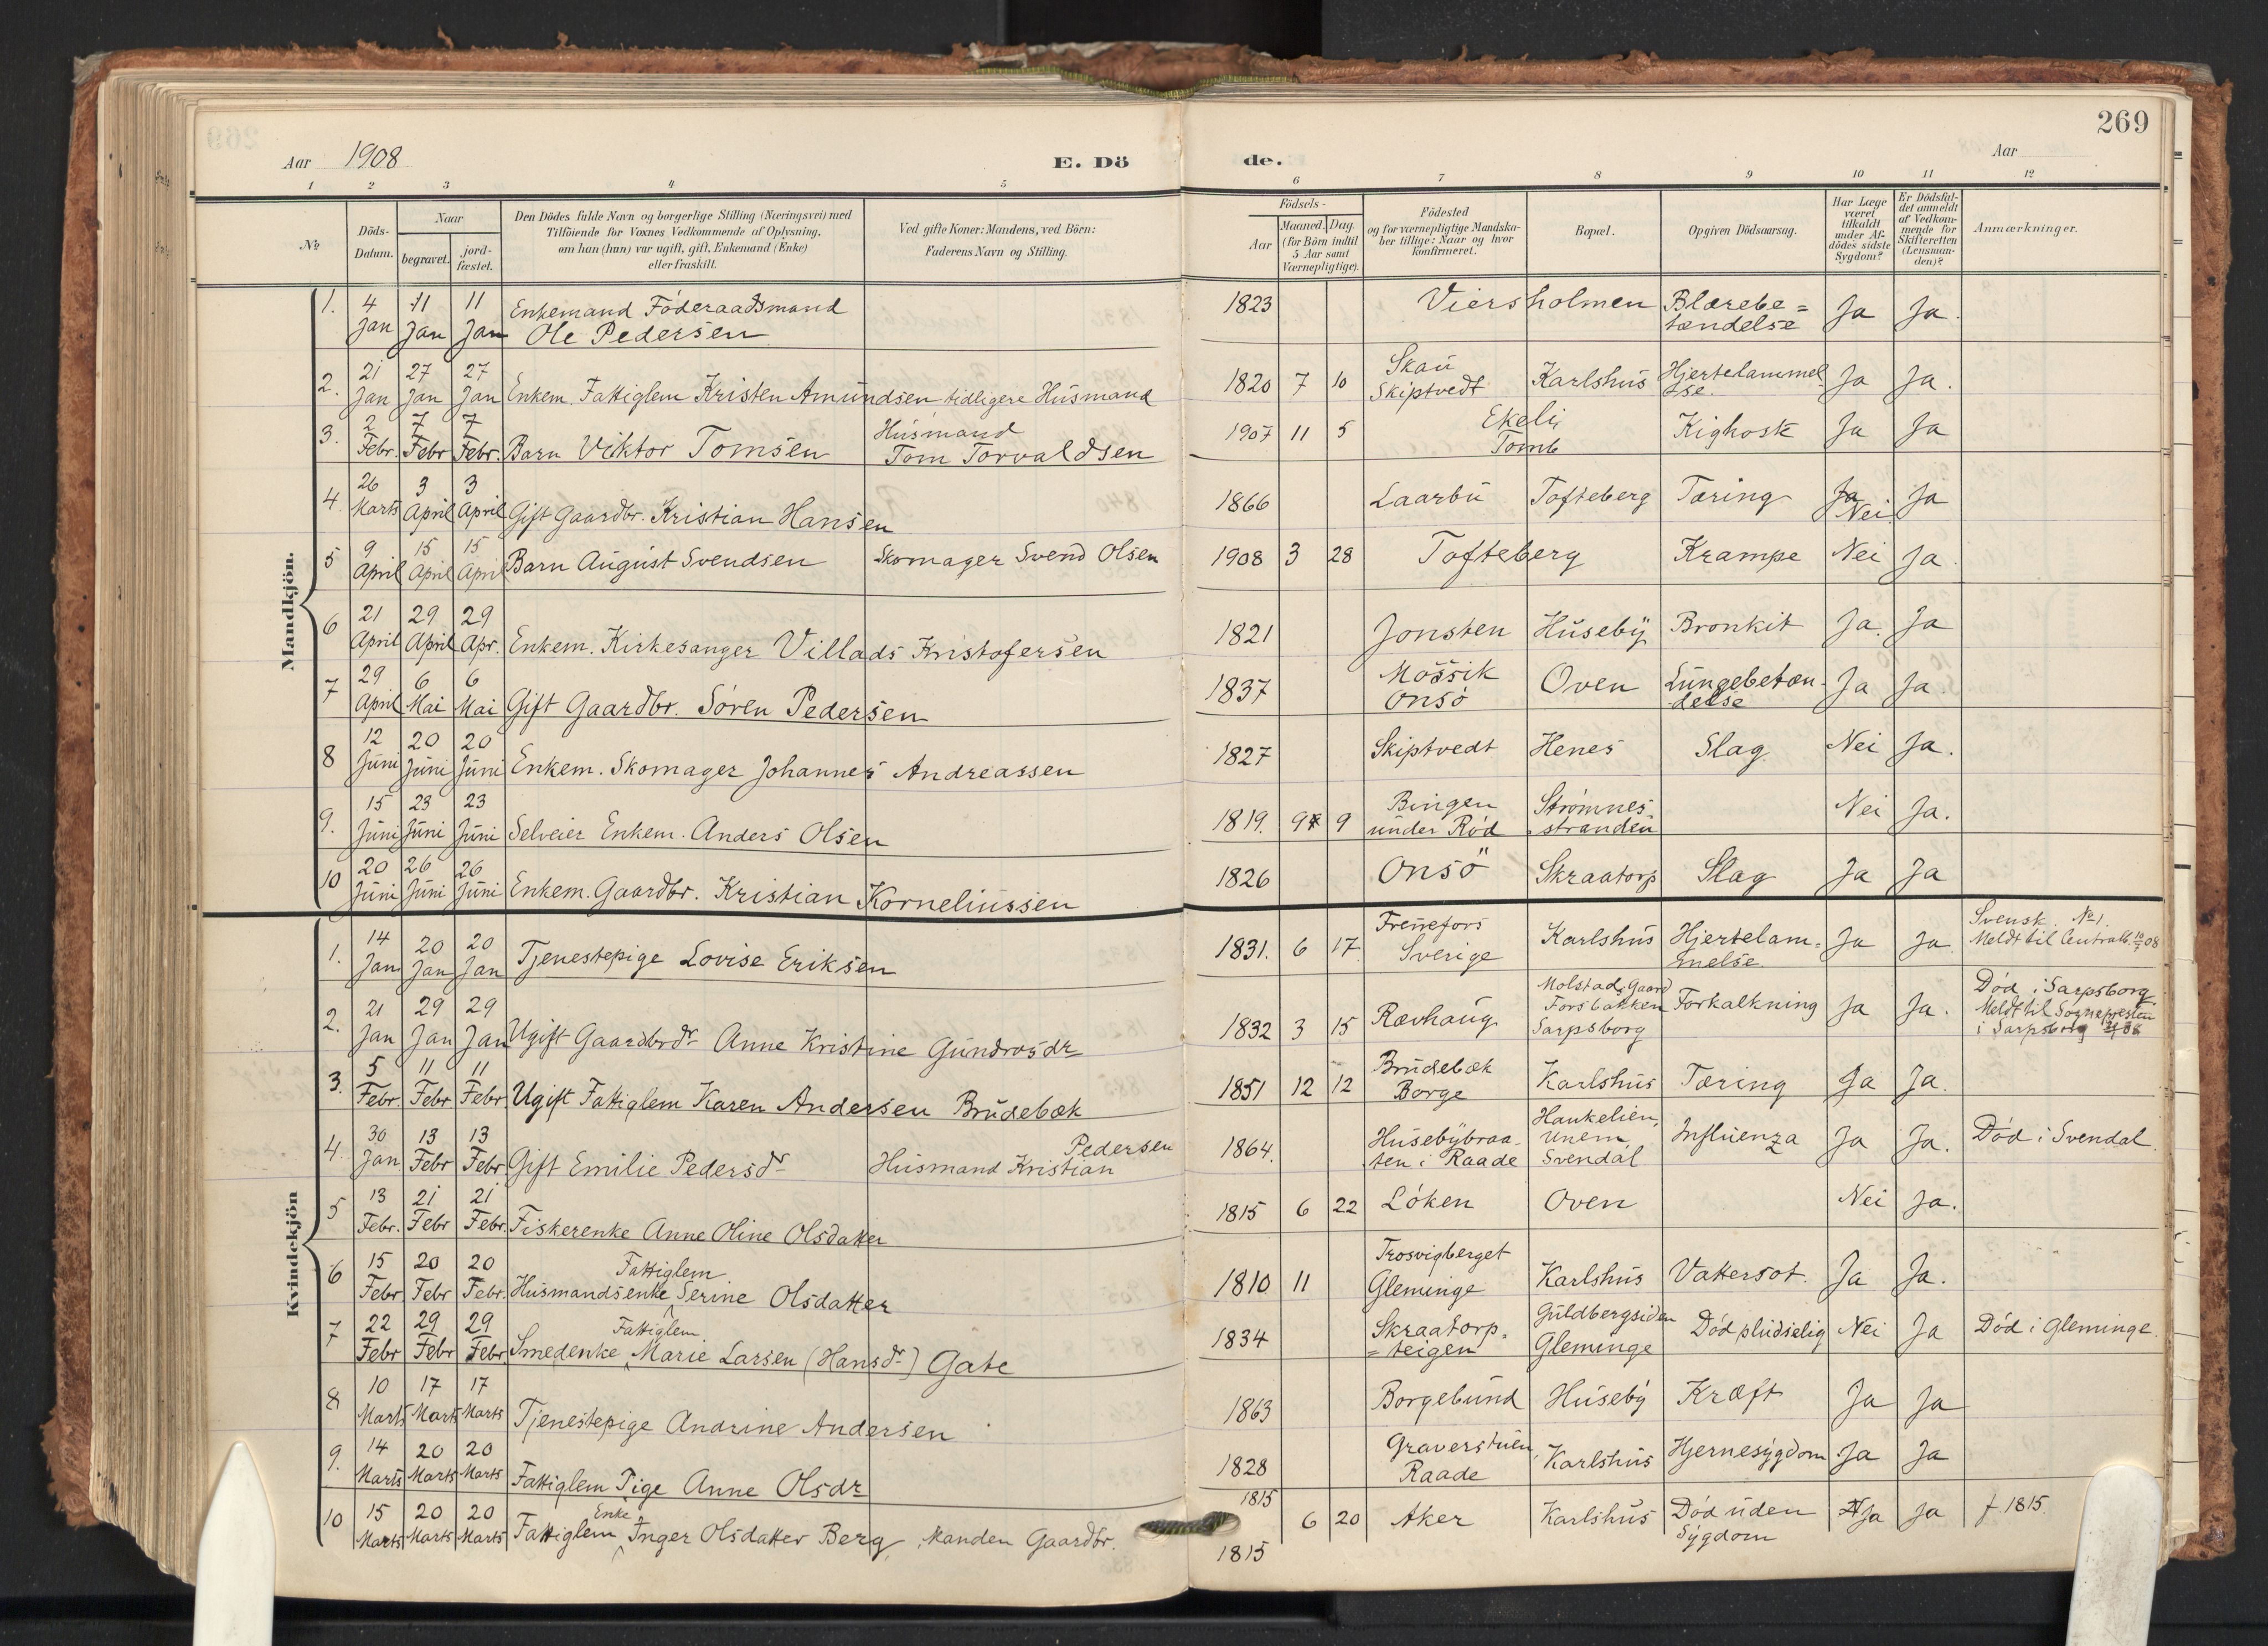 269
Aar 1908 E. Dö de. Aar
1 2 3 4 5 6 7 8 9 10 11 12
№
Döds-Datum.
Naar
begravet.
jord-fæstet.
Den Dödes fulde Navn og borgerlige Stilling (Næringsvei) med
Tilföiende for Voxnes Vedkommende af Oplysning,
om han (hun) var ugift, gift, Enkemand (Enke)
eller fraskilt.
Ved gifte Koner: Mandens, ved Börn:
Faderens Navn og Stilling.
Födsels-
Aar
Maaned. Dag.
(for Börn indtil
5 Aar samt
Værnepligtige).
Födested
og for værnepligtige Mandska-
ber tillige: Naar og hvor
konfirmeret.
Bopæl.
Opgiven Dödsaarsag.
Har Læge
været
tilkaldt
under Af-
dödes sidste
Sygdom?
Er Dödsfal-
det anmeldt
af Vedkom-
mende for
Skifteretten
(Lensman-
den)?
Anmærkninger.
Mandkjön.
1. 4 Jan 11 Jan 11 Jan Enkemand Föderaadsmand
Ole Pedersen 1823 Viersholmen Blærebe=
tændelse Ja Ja.
2. 21 Jan 27 Jan 27 Jan Enkem. Fattiglem Kristen Amundsen tidligere Husmand 1820 7 10 Skau
Skiptvedt Karlshus Hjertelammel-
se. Ja Ja.
3. 2 Febr. 7 Febr 7 Febr. Barn Viktor Tomsen Husmand
Tom Torvaldsen 1907 11 5 Ekeli
Tomb Kighoste Ja Ja
4. 26 Marts 3 April 3 April Gift Gaardbr. Kristian Hansen 1866 Laarbu Tofteberg Tæring Ja
Nei Ja
5 9 April 15 April 15 April Barn August Svendsen Skomager Svend Olsen 1908 3 28 Tofteberg Krampe Nei Ja.
6 21 April 29 April 29 Apr. Enkem. Kirkesanger Villads Kristofersen 1821 Jonsten Huseby Bronkit Ja. Ja
7 29 April 6 Mai 6 Mai Gift Gaardbr. Sören Pedersen 1837 Mossik
Onsö Oven Lungebetæn-
delse Ja Ja
8 12 Juni 20 Juni 20 Juni Enkem. Skomager Johannes Andreassen 1827 Skiptvedt Henes Slag Nei Ja.
9. 15 Juni 23 Juni 23 Juni Selveier Enkem. Anders Olsen 1819. 9 9 Bingen
under Röd Strömnes-
stranden Nei Ja.
10 20 Juni 26 Juni 26 Juni Enkem. Gaardbr. Kristian Korneliussen 1826 Onsö Skraatorp Slag Ja Ja
Kvindekjön
1. 14 Jan 20 Jan 20 Jan Tjenestepige Lovise Eriksen 1831. 6 17. Frennefors
Sverige Karlshus Hjertelam=
melse Ja Ja Svensk. No 1.
Meldt til Centralb. 10/7 08
2. 21 Jan 29 Jan 29 Jan Ugift Gaardbrdr Anne Kristine Gundrosdr 1832 3 15 Rævhaug Molstad Gaard
Forsbakken
Sarpsborg Forkalkning Ja Ja. Död i Sarpsborg.
Meldt til Sognepresten
i Sarpsborg
3. 5 Febr. 11 Febr 11 Febr Ugift Fattiglem Karen Andersen Brudebæk 1851 12 12 Brudebæk
Borge Karlshus Tæring Ja Ja.
4. 30 Jan 13 Febr 13 Febr. Gift Emilie Pedersdr Husmand Kristian Pedersen 1864. Husebybraa-
ten i Raade Haukelien,
Unem
Svendal Influenza Ja Ja. Död i Svendal
5 13 Febr. 21 Febr 21 Febr. Fiskerenke Anne Oline Olsdatter 1815 6 22 Löken Oven Nei Ja.
6 15 Febr 20 Febr 20 Febr. Husmandsenke Fattiglem Serine Olsdatter 1810 11 Trosvigberget
Gleminge Karlshus Vattersot. Ja Ja.
7 22 Febr 29 Febr 29 Febr Smedenke Fattiglem Marie Larsen (Hansdr) Gate 1834 Skraatorp=
=teigen Guldbergsiden
Gleminge Död pludselig Nei Ja Död i Gleminge.
8 10 Marts 17 Marts 17 Marts Tjenestepige Andrine Andersen 1863 Borgebund Huseby Kræft Ja Ja
9. 14 Marts 20 Marts 20 Marts Fattiglem Pige Anne Olsdr 1828 Graverstuen,
Raade Karlshus Hjernesygdom Ja Ja
10 15 Marts 20 Marts 20 Marts Fattiglem Enke Inger Olsdatter Berg, Manden Gaardbr. 1815
1815 6 20 Aker Karlshus Död uden
Sygdom Ja Ja f 1815.